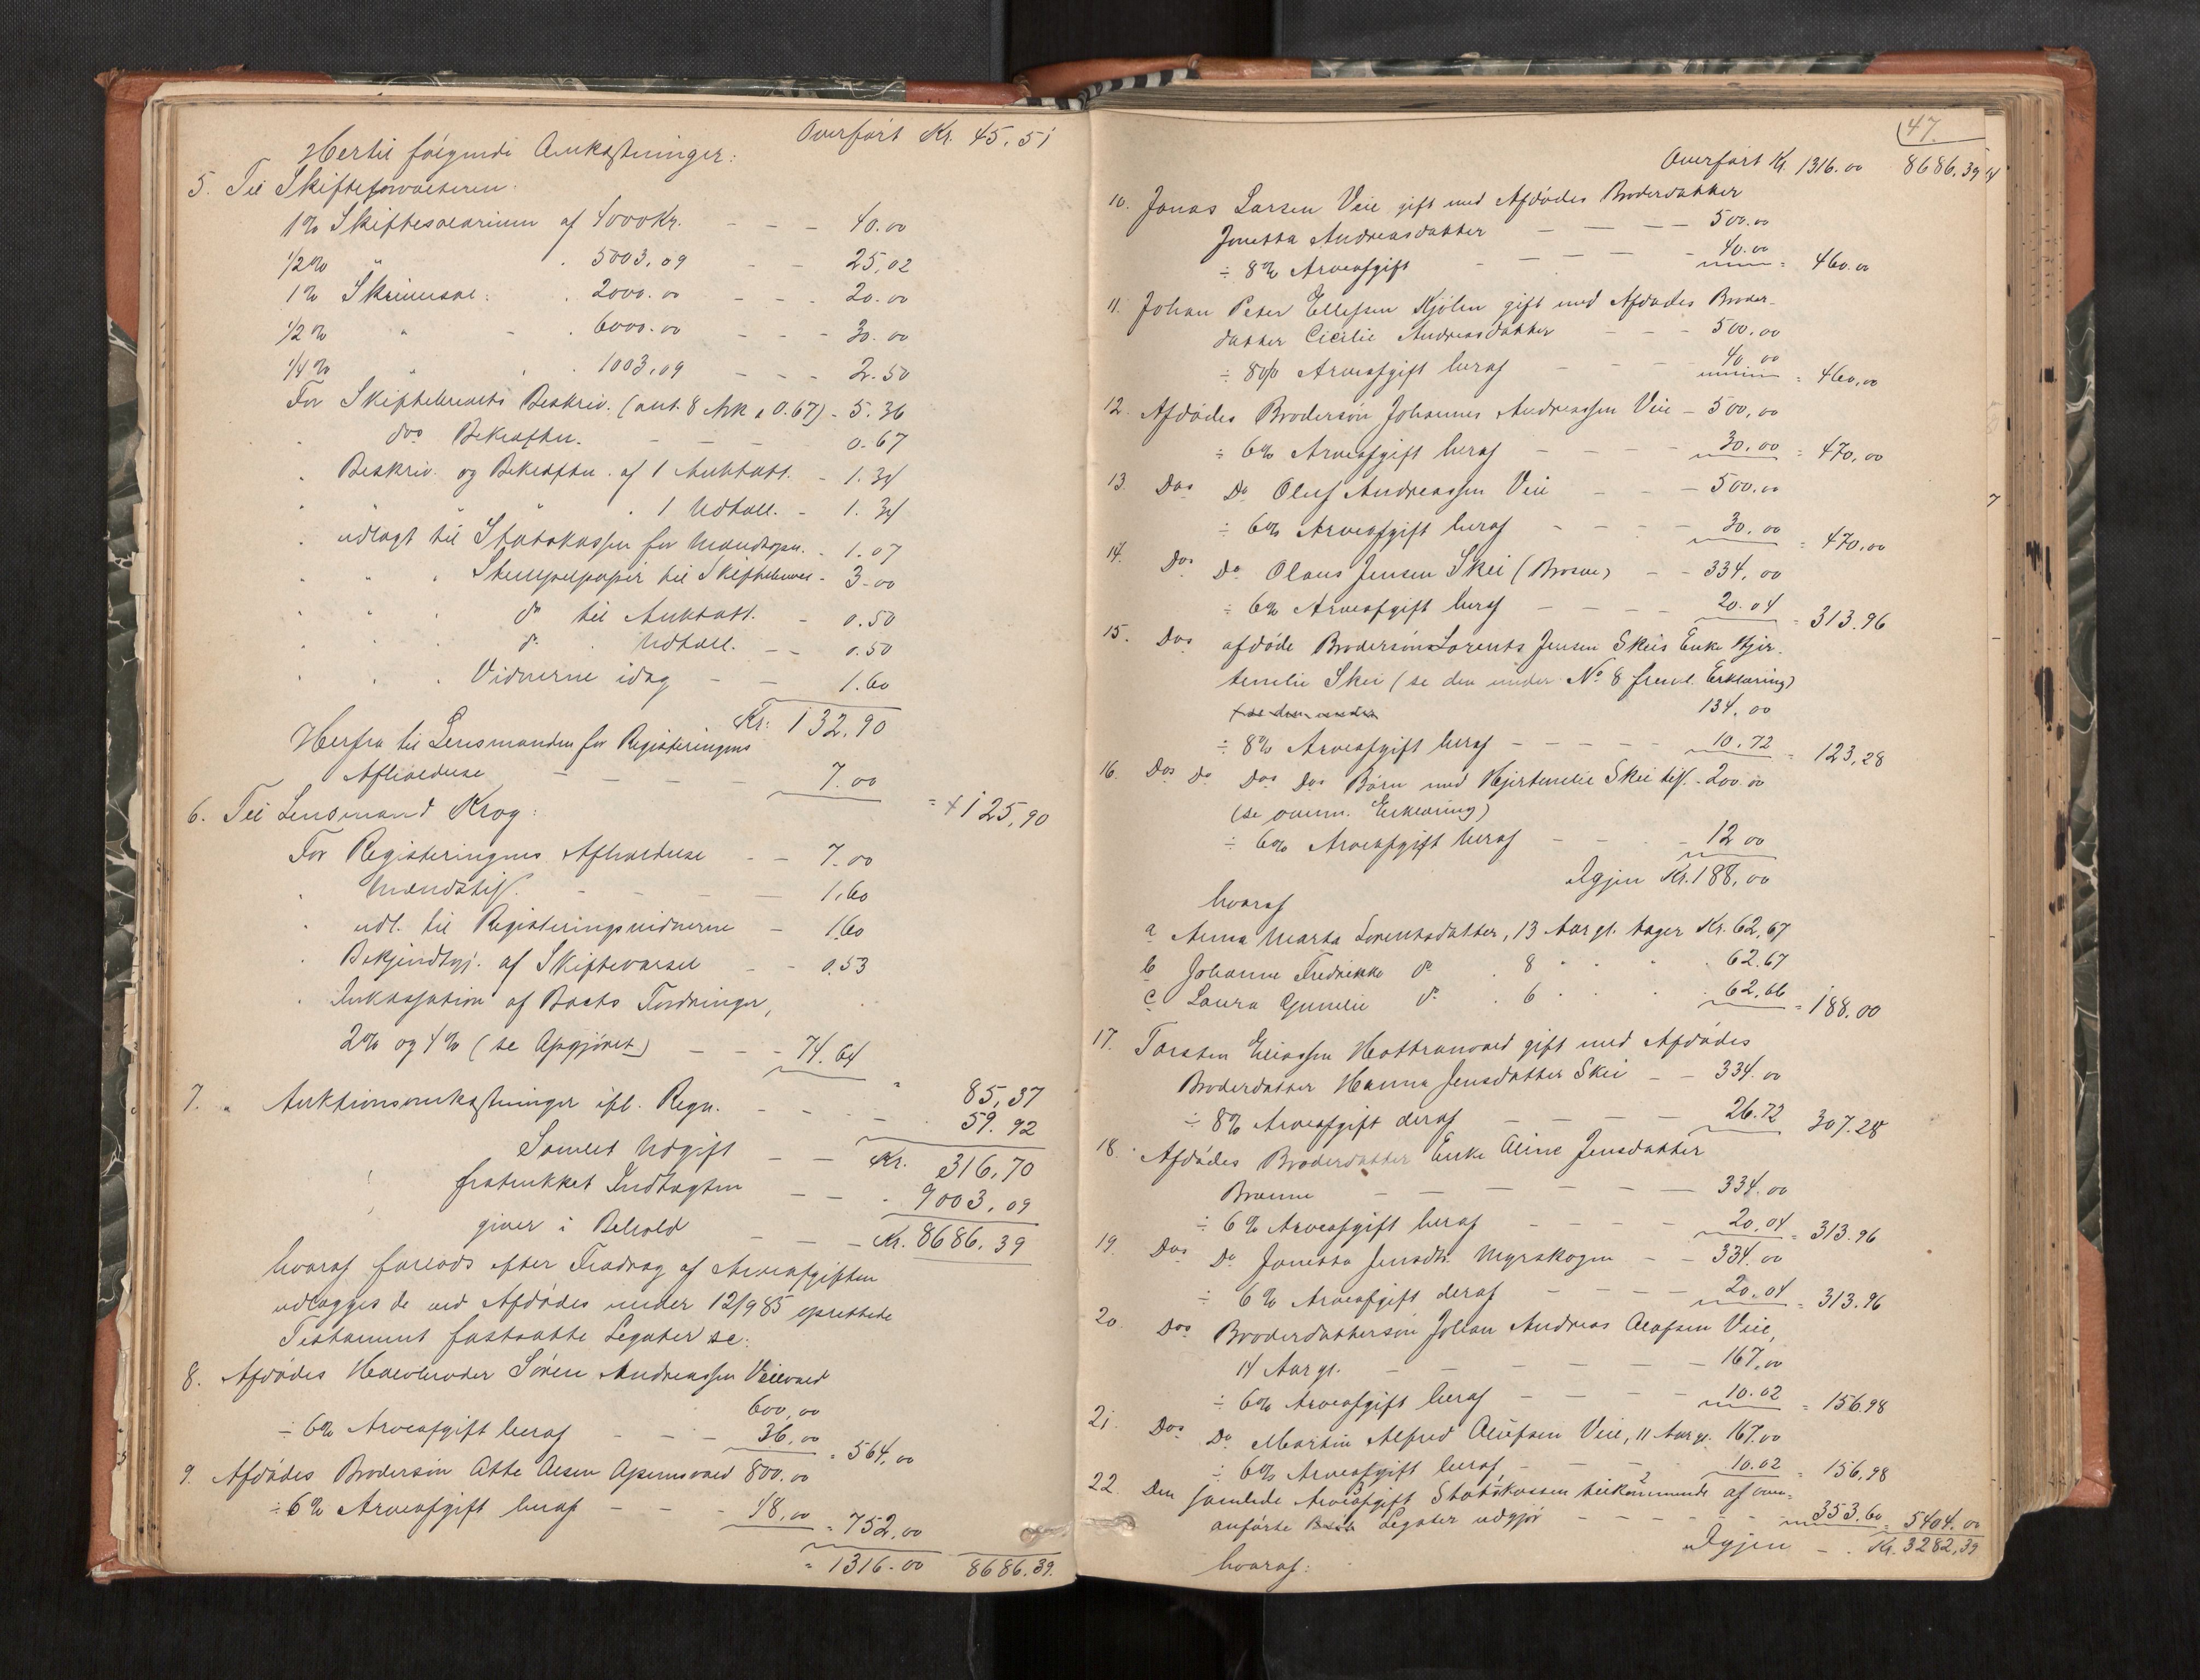 Overført Kr. 45,51
Hertil følgende Omkostninger:
5. Til Skifteforvalteren.
1% Skiftesalarium af 4000 Kr. - - - 40.00
1/2% " . 5003,09 - - 25,02
1% Skriversal: . 2000.00 - - - 20.00
1/2% " - . 6000.00 - - - 30.00
1/4% " . 1003,09 - - - 2.50
For Skiftebrevets Beskriv. (ant. 8 Ark a 0.67) - 5.36
do Bekræften. - - - 0.67
" Beskriv. og Bekræften. af 1 Auktatt. - 1.34
" " " . 1 Udtall. - 1.34
" udlagt til Statskassen for Mandtspn. - 1.07
" " . Stempelpapir til Skiftebrevet - 3.00
" " . do til Auktatt. - 0.50
" " . do . Udtall. - - 0.50
" . . Vidnerne idag - - 1.60
Kr. 132.90
Herfra til Lensmanden for Registeringens
Afholdelse - - - - 7.00
= 125,90
6. Til Lensmand Krog:
For Registeringens Afholdelse - - 7.00
" Mandstiff. - - - - 1,60
" udl. til Registeringsvidnerne - 1.60
" Bekjendtgj. af Skiftevarsel - - 0.53
" Inkassation af Boets Fordringer,
2% og 4% (se Opgjøret) - - - 74.64
" 85,37
7. " Auktionsomkostninger ifl. Regn. - - - - 59.92
Samlet Udgift - - Kr. 316,70
fratrukket Indtægten - - - 9003,09
giver i Behold - - - Kr. 8686,39
hvoraf forlods efter Fradrag af Arveafgiften
udlægges de ved Afdødes under 12/9 85 oprettede
Testament fastsatte Legater se:
8. Afdødes Halvbroder Søren Andreassen Veievald
600,00
÷ 6% Arveafgift heraf - - - 36,00 = 564,00
9. Afdødes Brodersøn Otte Olsen Apenesvald 800.00
÷ 6% Arveafgift heraf - - - 48,00 = 752,00
= 1316.00 8686.39.
47.
Overført Kr. 1316.00 8686,39
10. Jonas Larsen Veie gift med Afdødes Broderdatter
Jonetta Andreasdatter - - - - 500.00
÷ 8% Arveafgift - - - - - 40.00 = 460.00
11. Johan Peter Ellefsen Kjølen gift med Afdødes Broder-
datter Cicilie Andreasdatter - - - 500.00
÷ 8% Arveafgift heraf - - - 40.00 = 460,00
12. Afdødes Brodersøn Johannes Andreassen Veie - 500,00
÷ 6% Arveafgift heraf - - - - 30.00 = 470,00
13. Dos Do Oluf Andreassen Veie - - - 500.00
÷ 6% Arveafgift heraf - - - - 30.00 = 470,00
14. Dos Do Olaus Jensen Skei (Brosne) - - 334,00
÷ 6% Arveafgift heraf - - - - 20.04 = 313.96
15. Dos afdøde Brodersøns Lorents Jensen Skeis Enke Hjer-
temelie Skei (se den under No 8 freml. Erklæring)
(se den under
134.00
÷ 8% Arveafgift heraf - - - - - 10.72 = 123,28
16. Dos do Dos Dos Børn med Hjertemelie Skei tiff. - 200.00
(se ovenn. Erklæring)
÷ 6% Arveafgift heraf - - - 12 00
Igjen Kr. 188,00
hvoraf
a Anna Marta Lorentsdatter, 13 Aar gl. tager Kr. 62,67
b Johanne Fredrikke do . 8 " " . 62.67
c Laura Gunelie do . 6 " " . 62,66 = 188.00
17. Torsten Eliassen Hottranvald gift med Afdødes
Broderdatter Hanna Jensdatter Skei - - 334.00
÷ 8% Arveafgift deraf - - - - 26.72 307.28
18. Afdødes Broderdatter Enke Oline Jensdatter
Brænne - - - - - - 334.00
÷ 6% Arveafgift heraf - - - - 20,04 = 313.96
19. Dos Do Jonetta Jensdtr. Myrskogen - - 334.00
÷ 6% Arveafgift deraf - - - - 20.04 = 313.96
20. Dos Broderdattersøn Johan Andreas Olafsen Veie,
14 Aar gl. - - - - - 167,00
÷ 6% Arveafgift heraf - - - - 10.02 = 156.98
21. Dos Do Martin Alfred Olufsen Veie, 11 Aar gl. 167.00
÷ 6% Arveafgift heraf - - - - 10.02 = 156,98
22. Den samlede Arveafgift Statskassen tilkommende af oven-
anførte Legater udgjør - - - - - 353.60 = 5404.00
Igjen - . Kr. 3282,39
hvoraf: